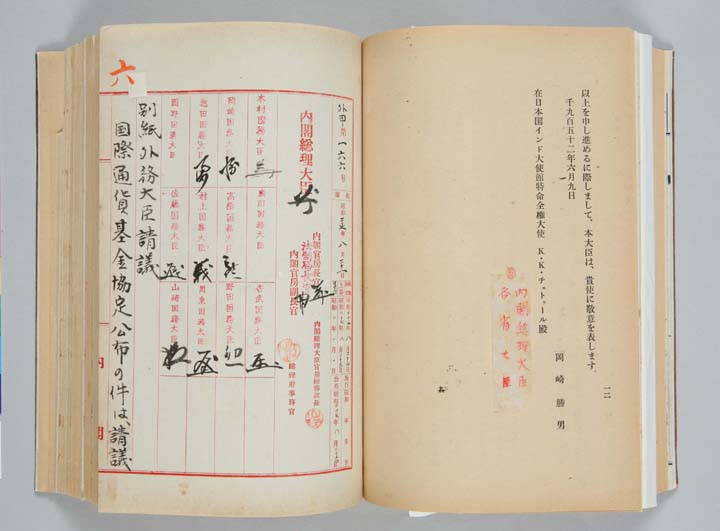 以上を申し進めるに際しまして、本大臣は、貴使に敬意を表します。
千九百五十二年六月九日
岡崎勝男
在日本国インド大使館特命全権大使 K・K・チェトゥール殿
内閣総理大臣
各省大臣
一二
六
外甲第一六六号
内閣総理大臣
内閣官房長官
法制局長官
内閣官房副長官
内閣総理大臣官房総務課長
総理府事務官
木村国務大臣
岡崎国務大臣
池田国務大臣
吉武国務大臣
高橋国務大臣
村上国務大臣
佐藤国務大臣
野田国務大臣
周東国務大臣
山崎国務大臣
別紙外務大臣請議
国際通貨基金協定公布の件は、請議
内閣